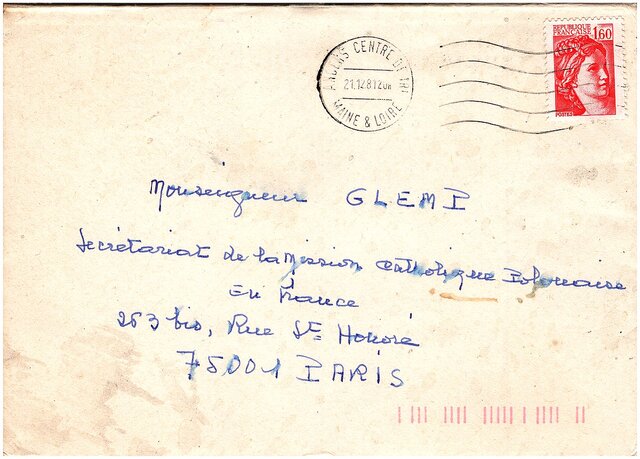 ANGERS CENTRE DE TRI
21.12.81 20H
MAINE & LOIRE
REPUBLIQUE
FRANCAISE
1,60
POSTES
Monseigneur GLEMP
Secrétariat de la Mission Catholique Polonaise
En France
263 bis, Rue St Honoré
75001 PARIS